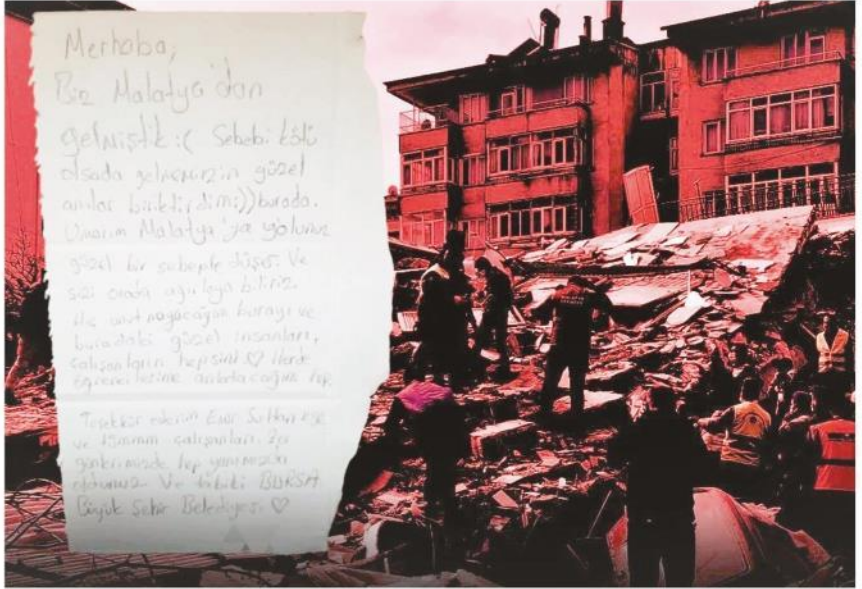 Merhaba,
Biz Malatya'dan
gelmiştik :( Sebebi kötü
olsada gelmemizin güzel
anılar biriktirdim:)) burada.
Umarım Malatya'ya yolunuz
güzel bir sebeple düşer. Ve
sizi orada ağırlaya biliriz.
Hiç unutmayacağım burayı ve
buradaki güzel insanları,
çalışanların hepsini ♡ İlerde
öğrencilerime anlatacağım hep.
Teşekkür ederim Emir Sultan
ve çalışanları. Zor
günlerimizde hep yanımızda
oldunuz. Ve tabiki BURSA
Büyük Şehir Belediyesi. ♡